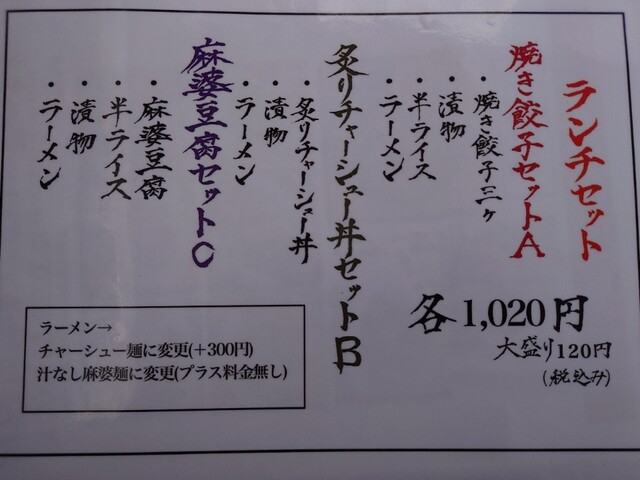 ランチセット
焼き餃子セットA
・焼き餃子三ヶ
・漬物
・半ライス
・ラーメン
炙りチャーシュー丼セットB
・炙りチャーシュー丼
・漬物
・ラーメン
麻婆豆腐セットC
・麻婆豆腐
・半ライス
・漬物
・ラーメン
各1,020円
大盛り120円
(税込み)
ラーメン→
チャーシュー麺に変更(+300円)
汁なし麻婆麺に変更(プラス料金無し)